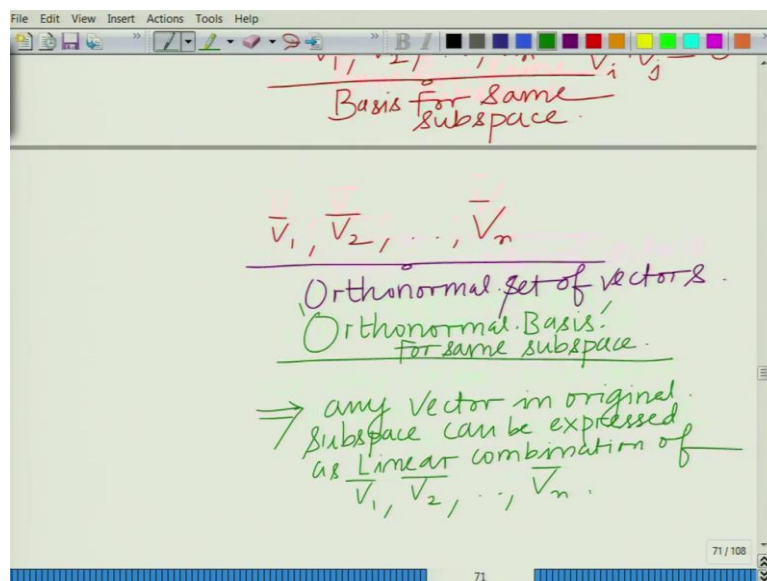 File Edit View Insert Actions Tools Help
V̅₂, ..., V̅ᵢ · V̅ⱼ = 0
Basis for same
subspace.
V̅₁, V̅₂, ..., V̅ₙ
Orthonormal set of vectors.
'Orthonormal Basis'
for same subspace.
⇒ any vector in original
subspace can be expressed
as Linear combination of
V̅₁, V̅₂, .., V̅ₙ.
71 / 108
71